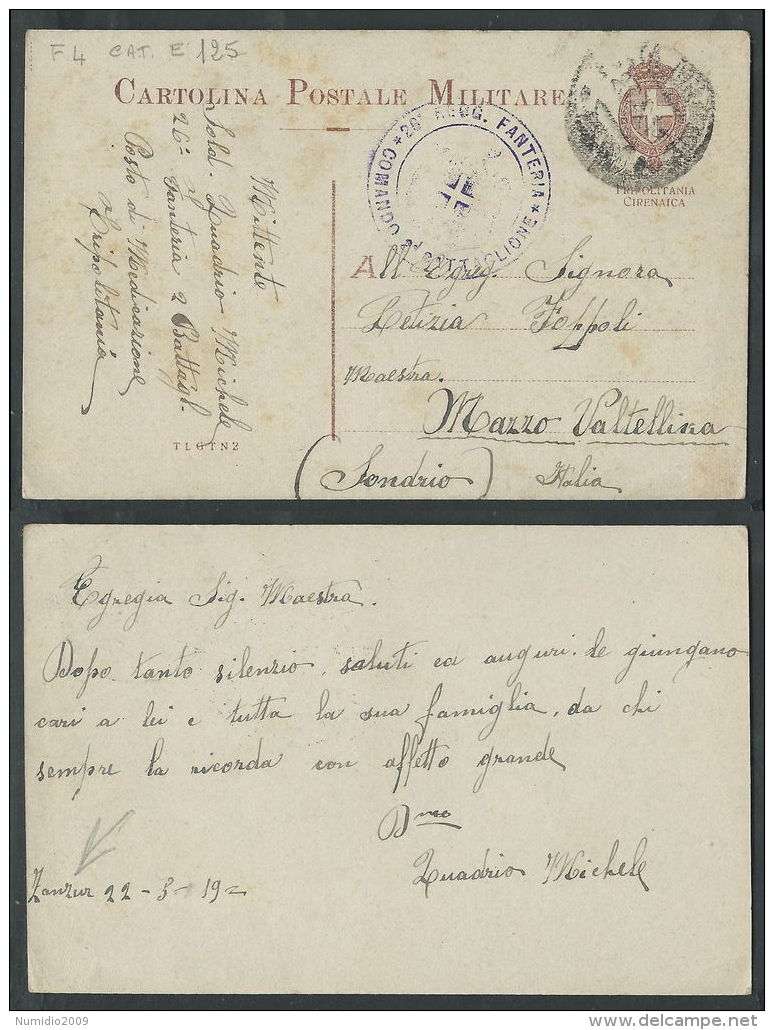 F4 CAT. E 125
CARTOLINA POSTALE MILITARE
TRIPOLITANIA
CIRENAICA
COMANDO 2° BATTAGLIONE * 26° REGG. FANTERIA *
Mittente
Sold. Quadrio Michele
26° Fanteria 2 Battagl.
Posto di Medicazione
Tripolitania
TLGTN2
All' Egreg. Signora
Letizia Foppoli
Maestra.
Mazzo Valtellina
(Sondrio) Italia
Egregia Sig. Maestra.
Dopo tanto silenzio, saluti ed auguri. Le giungano
cari a lei e tutta la sua famiglia, da chi
sempre la ricorda con affetto grande
Dmo
Quadrio Michele
Zanzur 22-5-19
© Numidio2009
delcampe.net